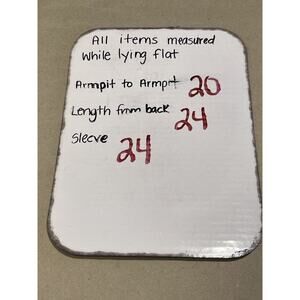 All items measured
while lying flat
Armpit to Armpit 20
Length from back 24
Sleeve 24